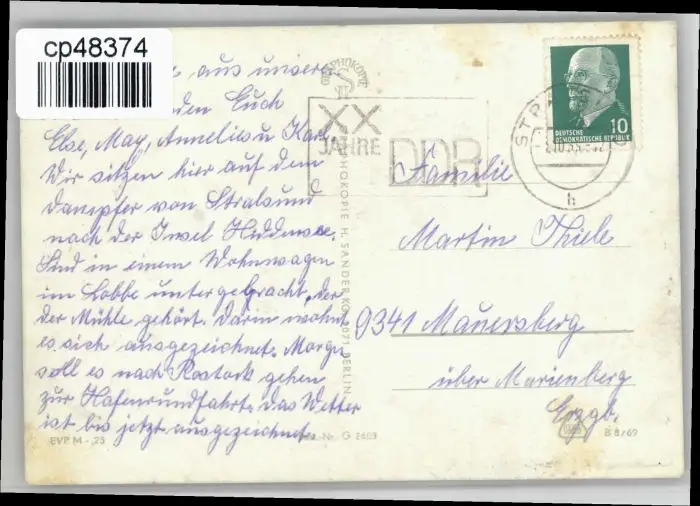 cp48374
aus unsere
den Euch
Else, May, Annelies u Karl
Wir sitzen hier auf dem
Dampfer von Stralsund
nach der Insel Hiddensee.
Sind in einem Wohnwagen
im Lobbe untergebracht, der
der Mühle gehört. Darin wohnt
es sich ausgezeichnet. Morge
soll es nach Rostock gehen
zur Hafenrundfahrt. Das Wetter
ist bis jetzt ausgezeichnet.
EVP M -,25
G 2603
B 8/69
XX
JAHRE
DDR
H. SANDER KG
BERLIN
10
DEUTSCHE
DEMOKRATISCHE REPUBLIK
STR
h
Familie
Martin Thiele
9341 Mauersberg
über Marienberg
Erzgb.